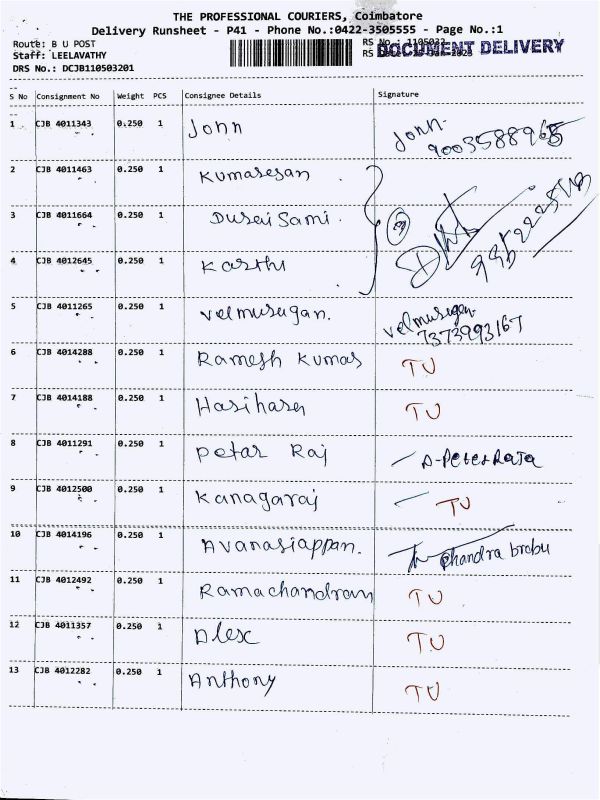 THE PROFESSIONAL COURIERS, Coimbatore
Delivery Runsheet - P41 - Phone No.:0422-3505555 - Page No.:1
Route: B U POST
RS No.: 1105032
DOCUMENT DELIVERY
Staff: LEELAVATHY
RS
DRS No.: DCJB110503201
S No Consignment No Weight PCS Consignee Details Signature
1 CJB 4011343 0.250 1 John John
9003588965
2 CJB 4011463 0.250 1 Kumaresan
3 CJB 4011664 0.250 1 Durai Sami. 3
4 CJB 4012645 0.250 1 Karthi
5 CJB 4011265 0.250 1 velmurugan. velmurugan
7373993167
6 CJB 4014288 0.250 1 Ramesh Kumar TU
7 CJB 4014188 0.250 1 Hariharan TU
8 CJB 4011291 0.250 1 Petar Raj A-PeterRaja
9 CJB 4012500 0.250 1 Kanagaraj TU
10 CJB 4014196 0.250 1 Avanasiappan. Chandra brobu
11 CJB 4012492 0.250 1 Ramachandran TU
12 CJB 4011357 0.250 1 Alex TU
13 CJB 4012282 0.250 1 Anthony TU